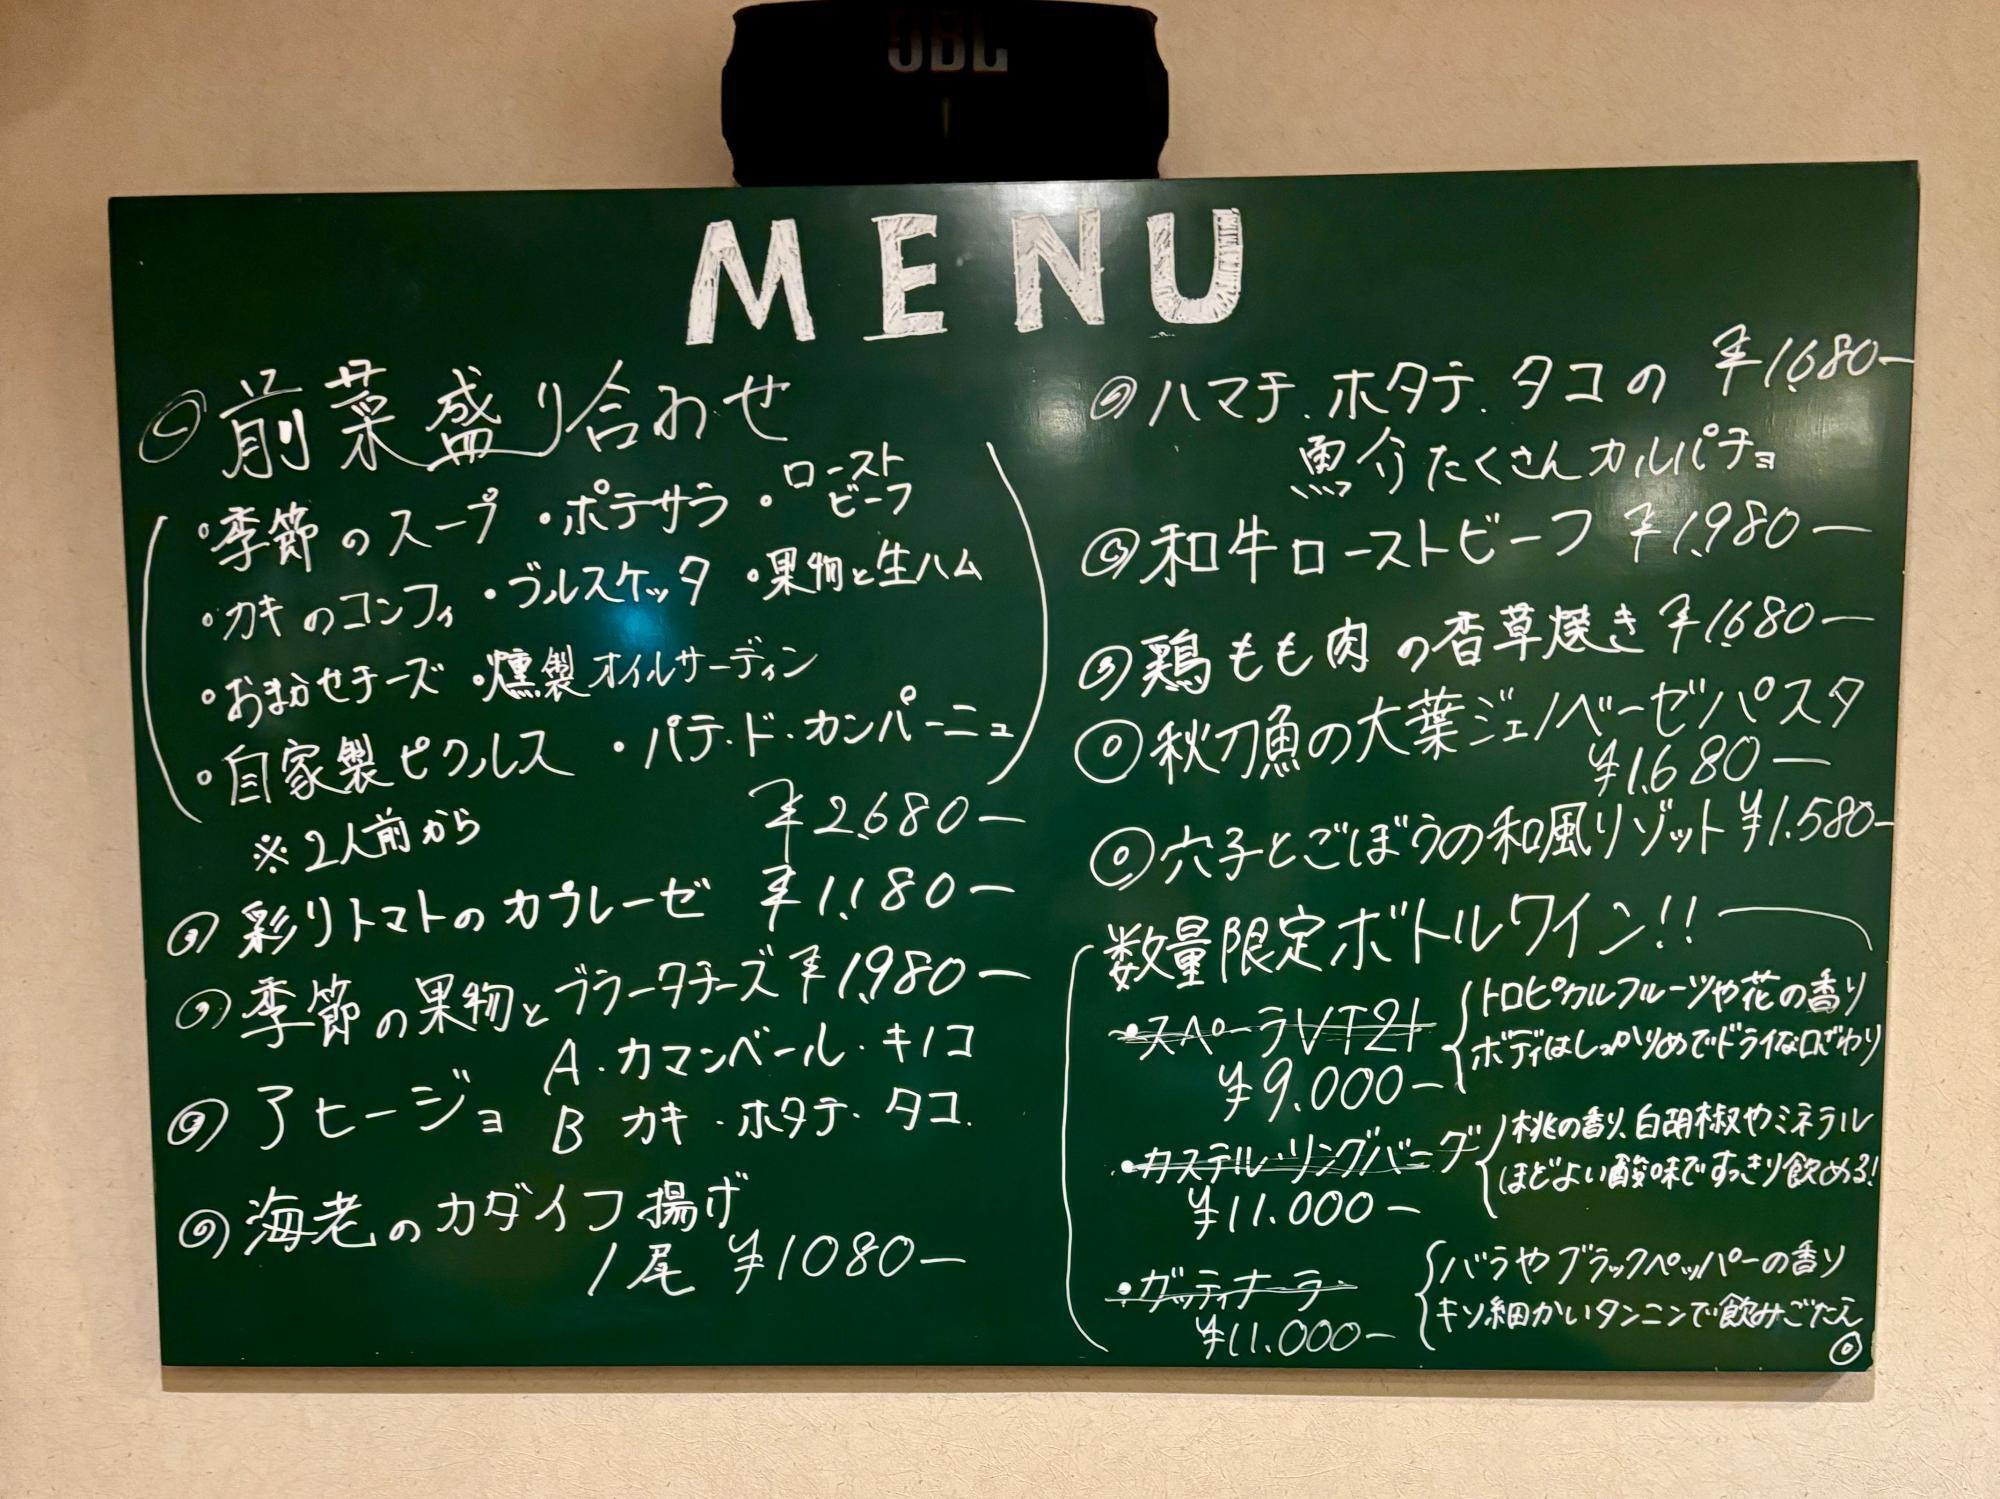 JBL
MENU
◎前菜盛り合わせ
・季節のスープ ・ポテサラ ・ローストビーフ
・カキのコンフィ ・ブルスケッタ ・果物と生ハム
・おまかせチーズ ・燻製オイルサーディン
・自家製ピクルス ・パテ・ド・カンパーニュ
※2人前から ¥2,680-
◎彩りトマトのカプレーゼ ¥1,180-
◎季節の果物とブラータチーズ ¥1,980-
◎アヒージョ A・カマンベール・キノコ
B カキ・ホタテ・タコ
◎海老のカダイフ揚げ
1尾 ¥1080-
◎ハマチ、ホタテ、タコの ¥1,680-
魚介たくさんカルパチョ
◎和牛ローストビーフ ¥1,980-
◎鶏もも肉の香草焼き ¥1,680-
◎秋刀魚の大葉ジェノベーゼパスタ
¥1,680-
◎穴子とごぼうの和風リゾット ¥1,580-
数量限定ボトルワイン!!
・スペーラVT21 トロピカルフルーツや花の香り
¥9,000- ボディはしっかりめでドライな口ざわり
・カステル・リングバーグ 桃の香り、白胡椒やミネラル
¥11,000- ほどよい酸味ですっきり飲める!
・ガッティナーラ バラやブラックペッパーの香り
¥11,000- キソ細かいタンニンで飲みごたえ
◎